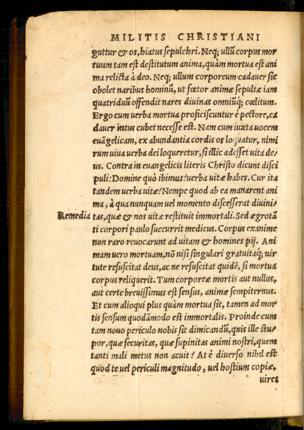 MILITIS CHRISTIANI
guttur & os, hiatus sepulchri. Neq; ullũ corpus mor
tuum tam est destitutum anima, quàm mortua est ani
ma relicta à deo. Neq; ullum corporeum cadauer sic
obolet naribus hominũ, ut fœtor animæ sepultæ iam
quatriduũ offendit nares diuinas omniũq; cœlitum.
Ergo cum uerba mortua proficiscuntur è pectore, ca
dauer intus cubet necesse est. Nam cum iuxta uocem
euãgelicam, ex abundantia cordis os loquatur, nimi
rum uiua uerba dei loqueretur, si illic adesset uita de-
us. Contra in euangelicis literis Christo dicunt disci
puli: Domine quò ibimus? uerba uitæ habes. Cur ita
tandem uerba uitæ? Nempe quod ab ea manarent ani
ma, à qua nunquam uel momento discesserat diuini
Remedia tas, quæ & nos uitæ restituit immortali. Sed ægrotã
ti corpori paulo succurrit medicus. Corpus exanime
non raro reuocarunt ad uitam & homines pij. Ani
mam uero mortuam, nõ nisi singulari gratuitaq; uir
tute resuscitat deus, ac ne resuscitat quidẽ, si mortua
corpus reliquerit. Tum corporeæ mortis aut nullus,
aut certe breuissimus est sensus, animæ sempiternus.
Et cum alioqui plus quàm mortua sit, tamen ad mor
tis sensum quodãmodo est immortalis. Proinde cum
tam nouo periculo nobis sit dimicandũ, quis ille stu
por, quæ securitas, quæ supinitas animi nostri, quem
tanti mali metus non acuit? At è diuerso nihil est
quod te uel periculi magnitudo, uel hostium copiæ,
uires